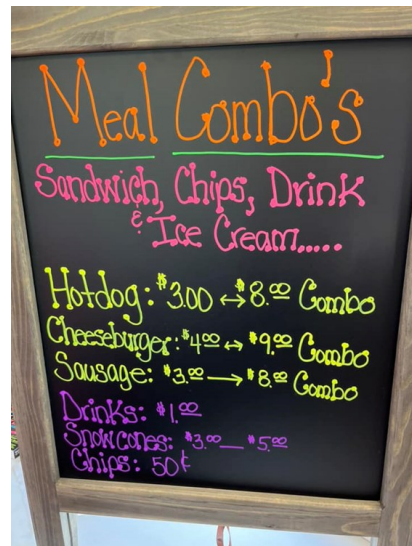 Meal Combo's
Sandwich, Chips, Drink
& Ice Cream.....
Hotdog: $3.00 ↔ $8.00 Combo
Cheeseburger: $4.00 ↔ $9.00 Combo
Sausage: $3.00 → $8.00 Combo
Drinks: $1.00
Snowcones: $3.00 — $5.00
Chips: 50¢